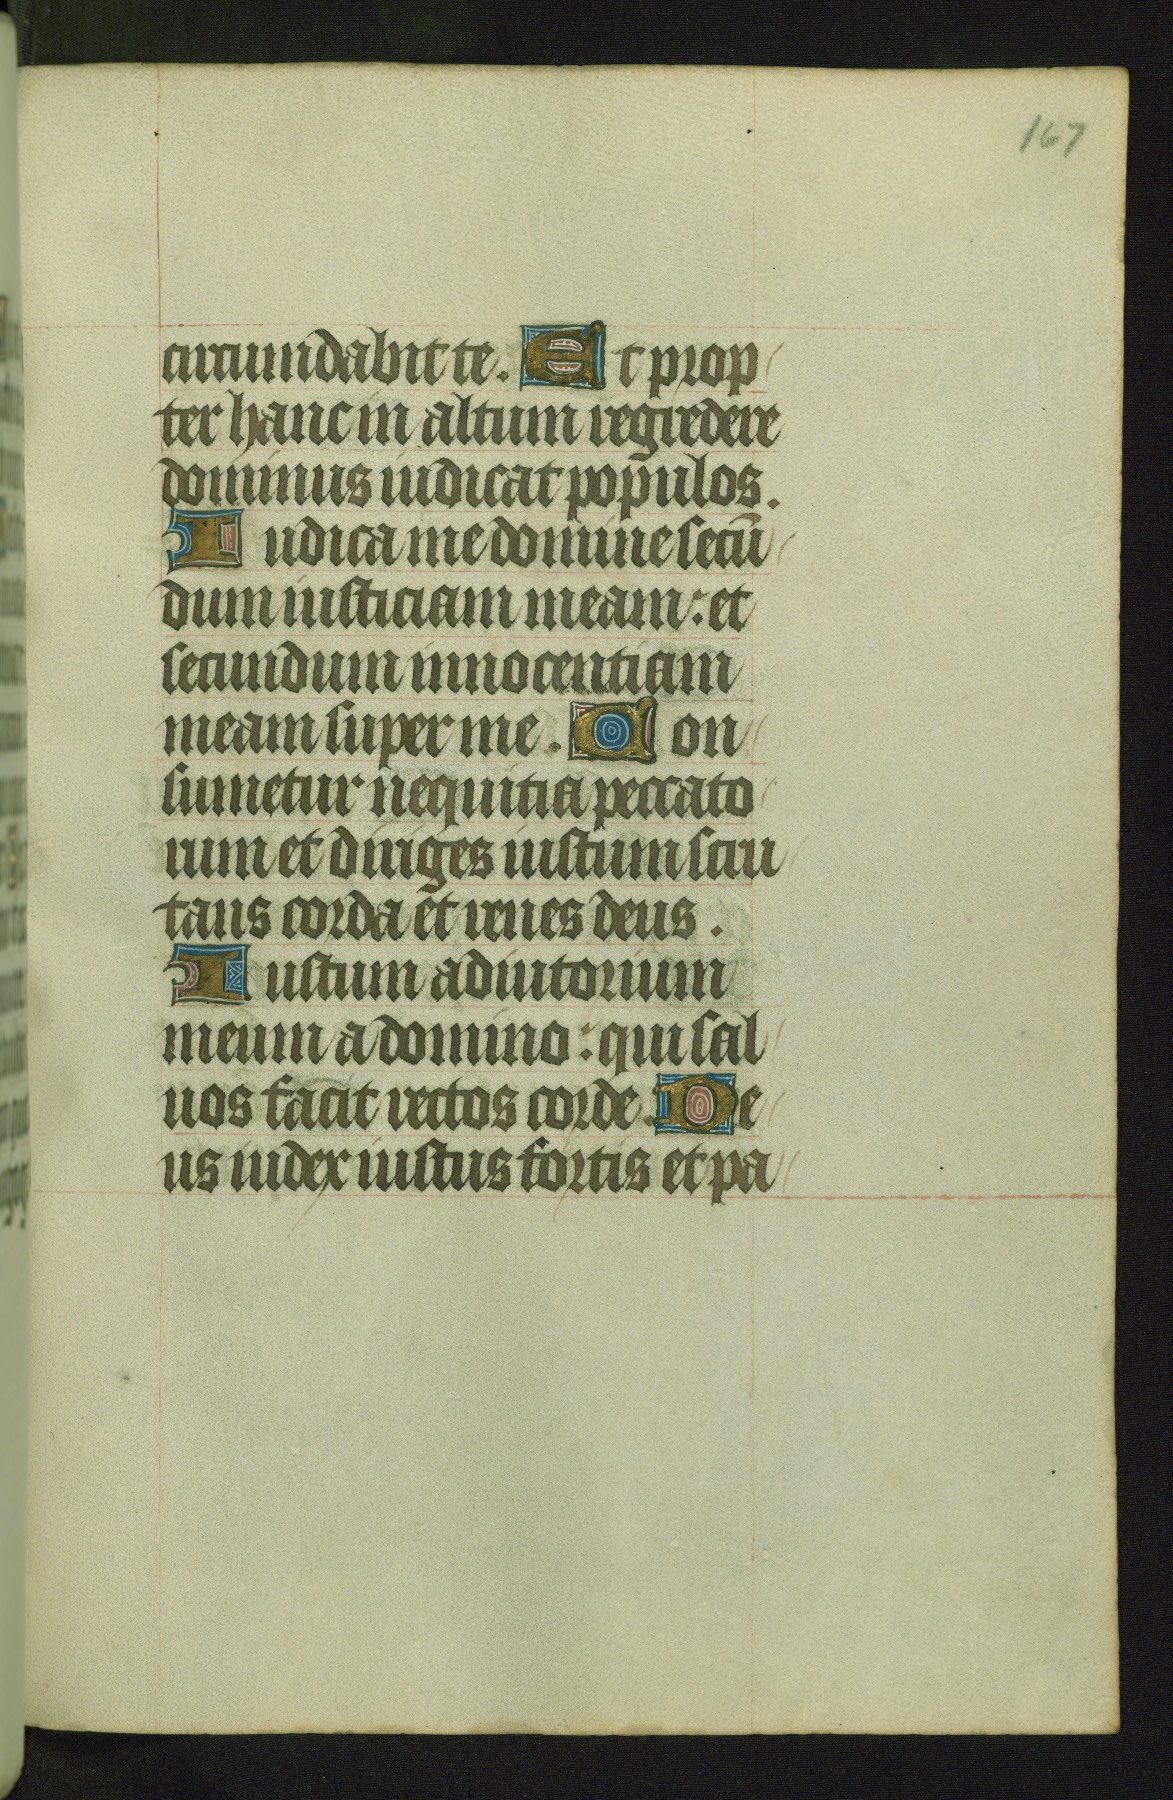 167
circumdabit te. Et prop
ter hanc in altum regredere
dominus iudicat populos.
Iudica me domine secū
dum iusticiam meam: et
secundum innocentiam
meam super me. Con
sumetur nequitia peccato
rum et diriges iustum scru
tans corda et renes deus.
Iustum adiutorium
meum a domino: qui sal
uos facit rectos corde. De
us iudex iustus fortis et pa